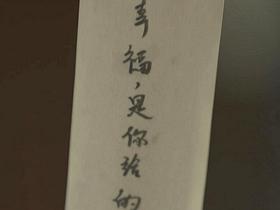 幸福，是你给的